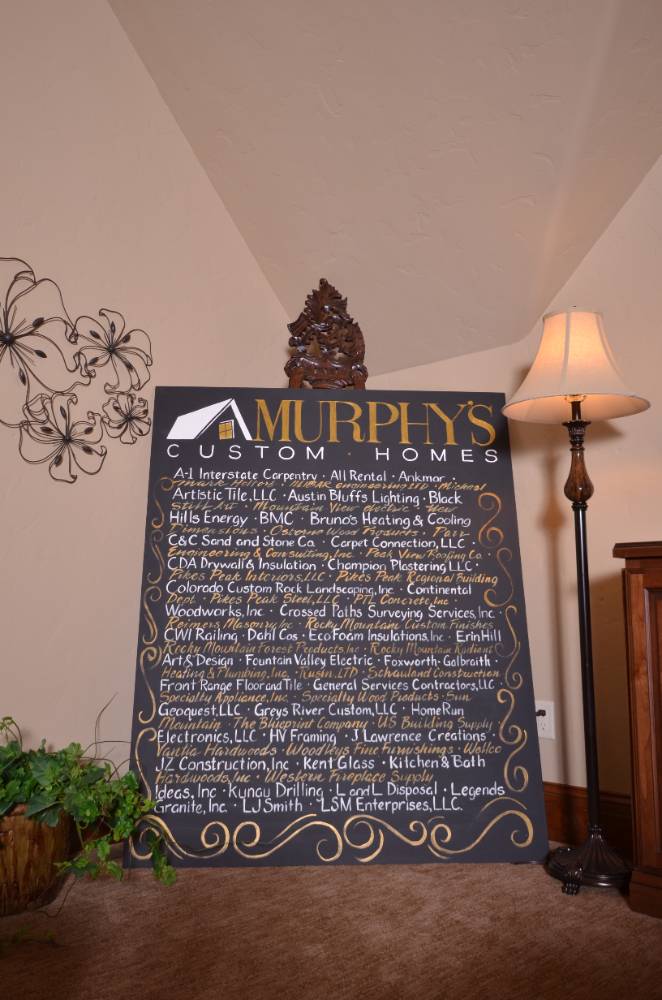 MURPHY'S
CUSTOM · HOMES
A-1 Interstate Carpentry · All Rental · Ankmar ·
Hellors · MiBAR engineering LTD · Michael
Artistic Tile, LLC · Austin Bluffs Lighting · Black
Still Art · Mountain View electric · New
Hills Energy · BMC · Bruno's Heating & Cooling
Dimensions · Osborne Wood Products · Parr
C&C Sand and Stone Co. · Carpet Connection, LLC ·
Engineering & Consulting, Inc · Peak View Roofing Co ·
CDA Drywall & Insulation · Champion Plastering LLC ·
Pikes Peak Interiors, LLC · Pikes Peak Regional Building
Colorado Custom Rock Landscaping, Inc · Continental
Dept. · Pikes Peak Steel, LLC · PTL Concrete, Inc ·
Woodworks, Inc · Crossed Paths Surveying Services, Inc.
Reimers Masonry, Inc · Rocky Mountain Custom Finishes
CWI Railing · Dahl Cos · EcoFoam Insulations, Inc · Erin Hill
Rocky Mountain Forest Products, Inc · Rocky Mountain Radiant
Art & Design · Fountain Valley Electric · Foxworth-Galbraith ·
Heating & Plumbing, Inc. · Rusin, LTD · Schauland Construction
Front Range Floor and Tile · General Services Contractors, LLC ·
Specialty Appliance, Inc. · Specialty Wood Products · Sun
Geoquest, LLC · Greys River Custom, LLC · HomeRun
Mountain · The Blueprint Company · US Building Supply
Electronics, LLC · HV Framing · J Lawrence Creations ·
Vantia Hardwoods · Woodleys Fine Furnishings · Wellco
JZ Construction, Inc · Kent Glass · Kitchen & Bath
Hardwoods, Inc · Western Fireplace Supply
Ideas, Inc · Kunau Drilling · L and L Disposal · Legends
Granite, Inc. · LJ Smith · LSM Enterprises, LLC.